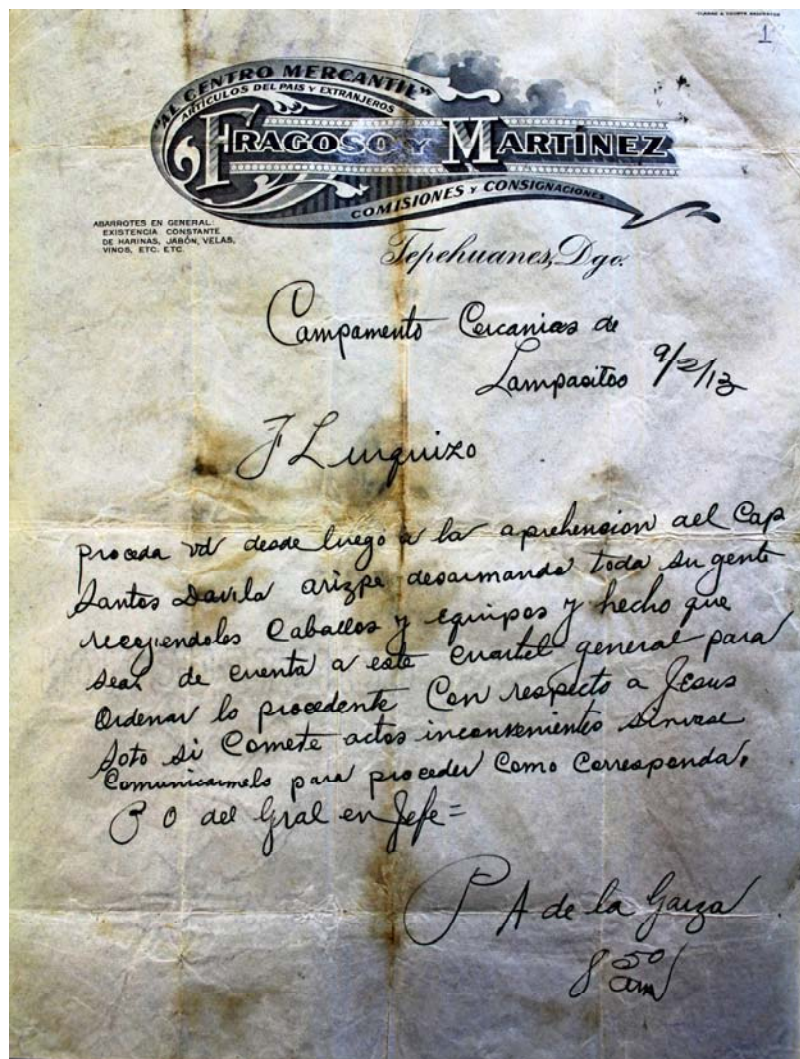 1
"AL CENTRO MERCANTIL"
ARTICULOS DEL PAIS Y EXTRANJEROS
FRAGOSO Y MARTÍNEZ
COMISIONES Y CONSIGNACIONES
ABARROTES EN GENERAL:
EXISTENCIA CONSTANTE
DE HARINAS, JABÓN, VELAS,
VINOS, ETC. ETC.
Tepehuanes, Dgo.
Campamento Cercanias de
Lampasitos 9/2/13
F L Lurquizo
proceda vd desde luego a la aprehencion del Cap
Santos Davila arizpe desarmando toda su gente
recojiendoles Caballos y equipos y hecho que
sea de cuenta a este cuartel general para
Ordenar lo procedente Con respecto a Jesus
Soto si Comete actos inconvenientes sirvase
Comunicarmelo para proceder Como Corresponda.
P O del Gral en Jefe =
P A de la Garza
8 50 am